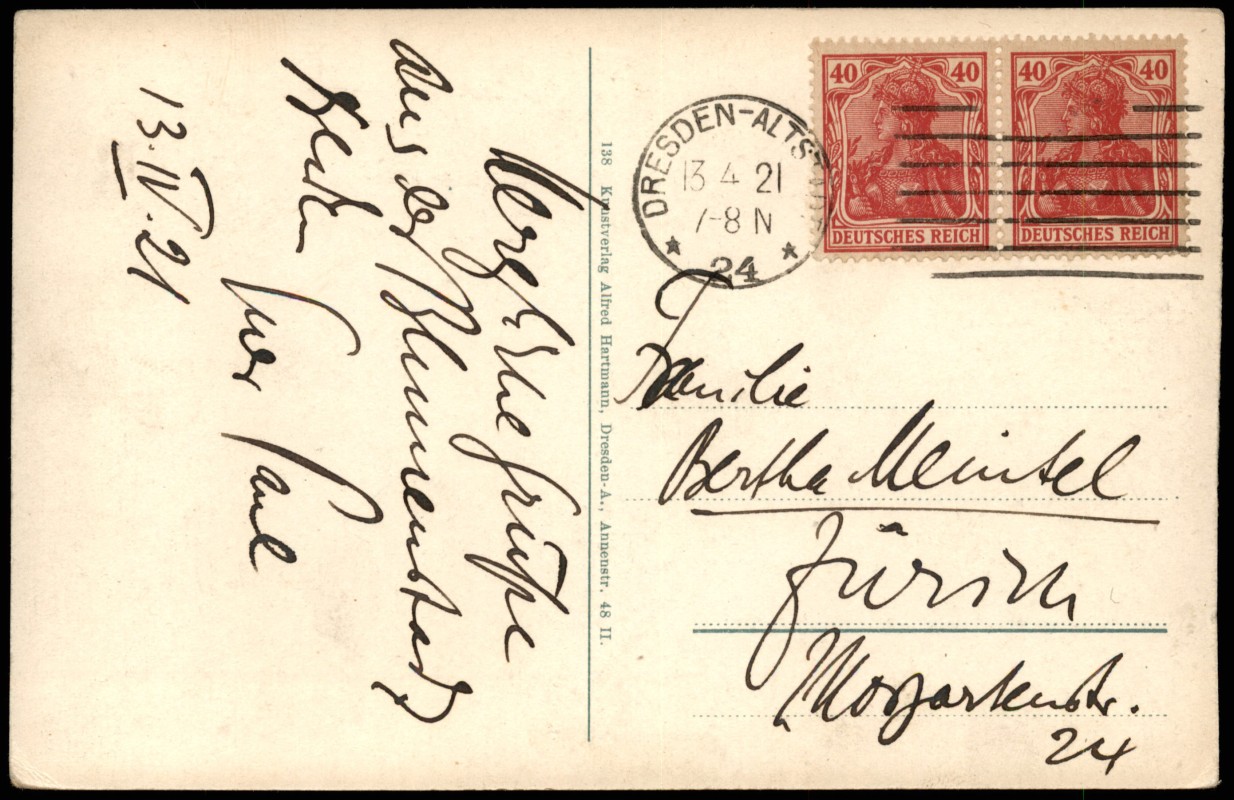 Herzliche Grüße
aus der Blumenstadt
Euer Paul
13.IV.21
138 Kunstverlag Alfred Hartmann, Dresden-A., Annenstr. 48 II.
DRESDEN-ALTSTADT
13 4 21
7-8 N
* 24 *
40 40 40 40
DEUTSCHES REICH DEUTSCHES REICH
Familie
Bertha Meintel
Zürich
Morgartenstr.
24